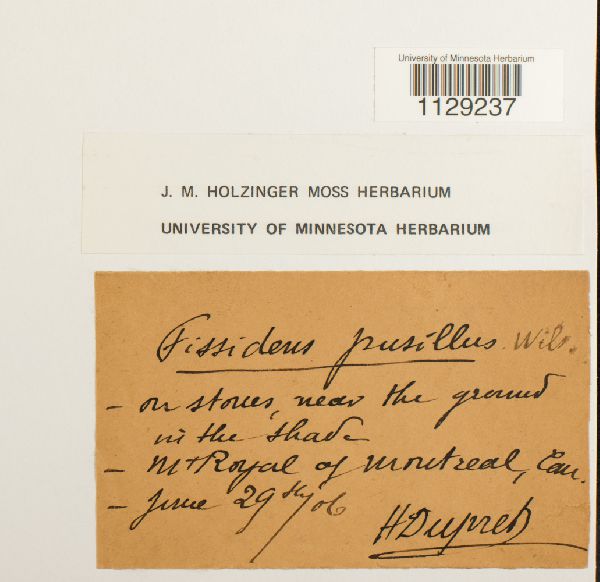 University of Minnesota Herbarium
1129237
J. M. HOLZINGER MOSS HERBARIUM
UNIVERSITY OF MINNESOTA HERBARIUM
Fissidens pusillus Wils.
- on stones, near the ground
in the shade
- Mt Royal of Montreal, Can.
- June 29th/06
H Dupret